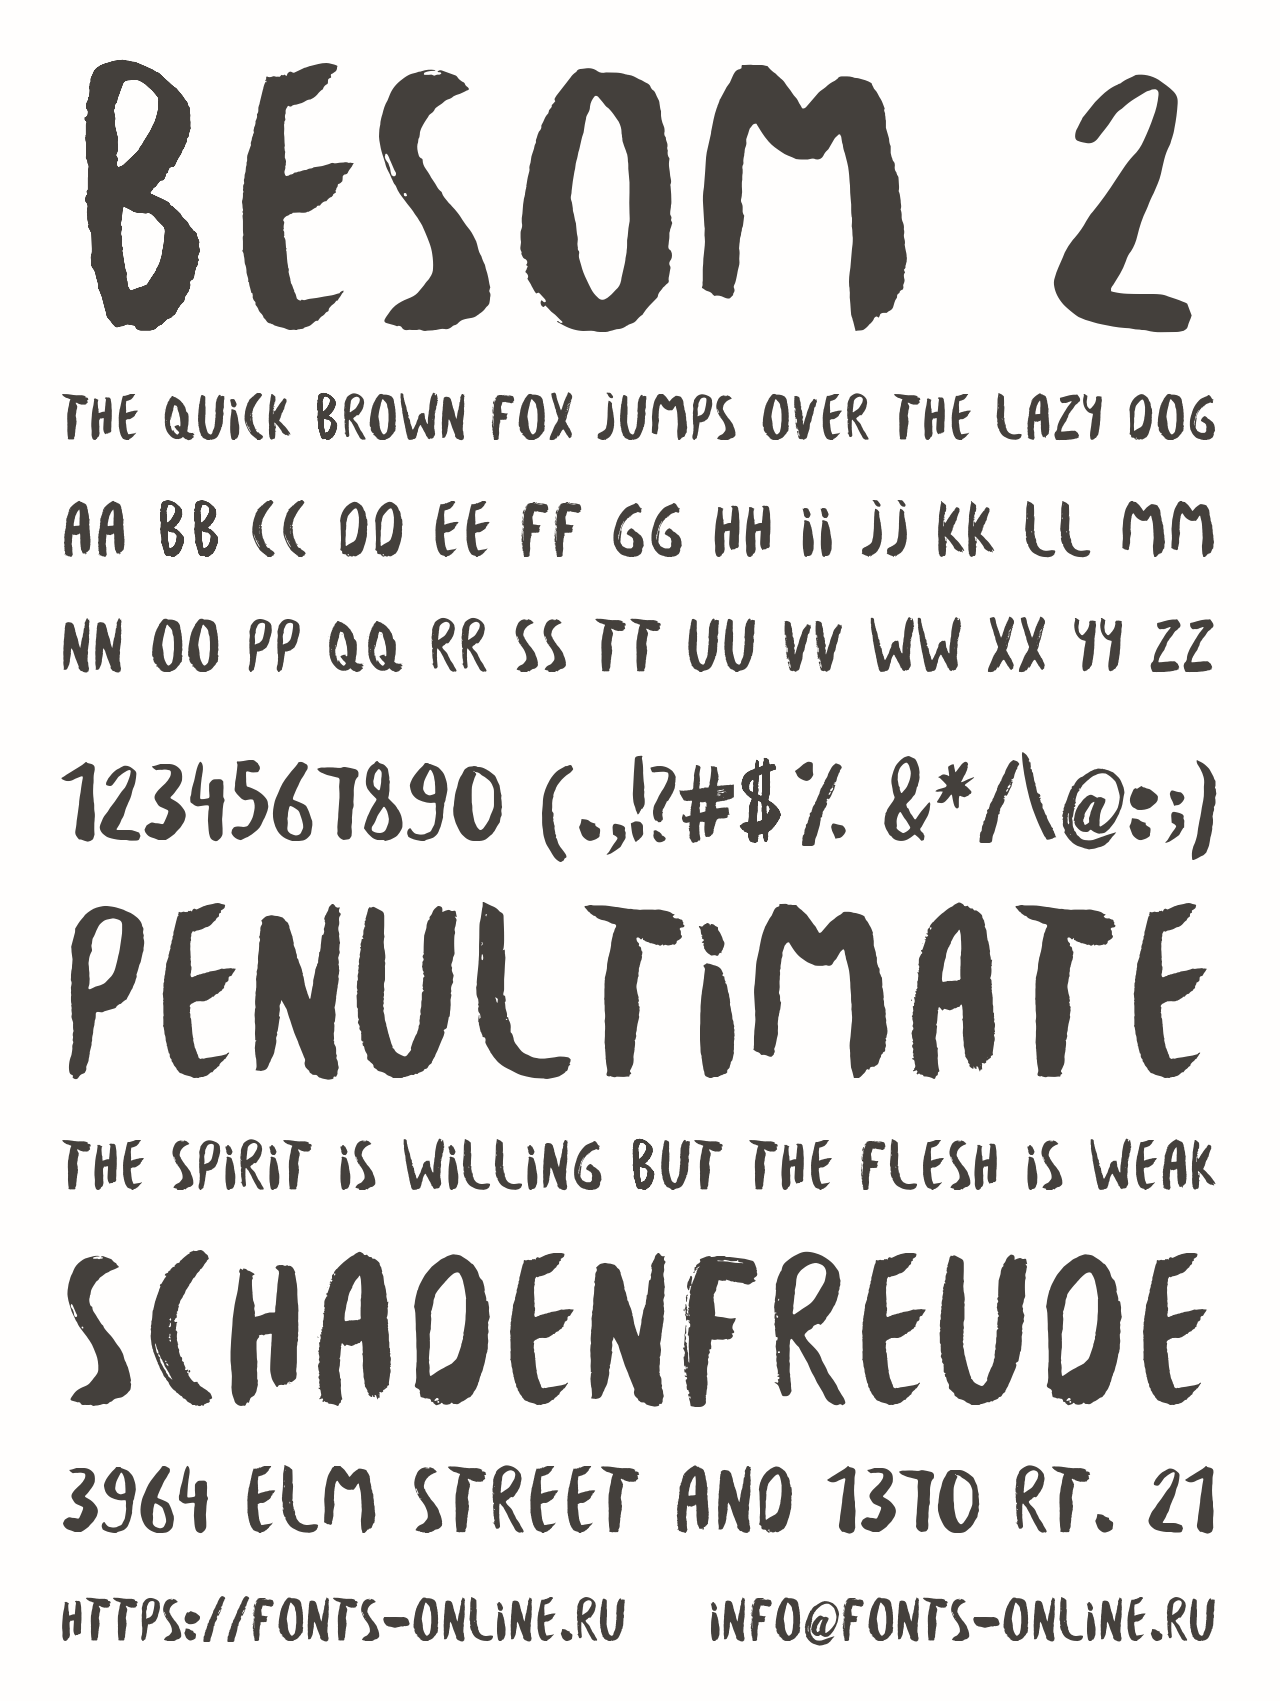 BESOM 2
THE QUiCK BROWN FOX jUMPS OVER THE LAZY DOG
AA BB CC DD EE FF GG HH ii jj KK LL MM
NN OO PP QQ RR SS TT UU VV WW XX YY ZZ
1234567890 (.,!?#$% &*/\@:;)
PENULTiMATE
THE SPiRiT iS WiLLiNG BUT THE FLESH iS WEAK
SCHADENFREUDE
3964 ELM STREET AND 1370 RT. 21
HTTPS://FONTS-ONLiNE.RU iNFO@FONTS-ONLiNE.RU